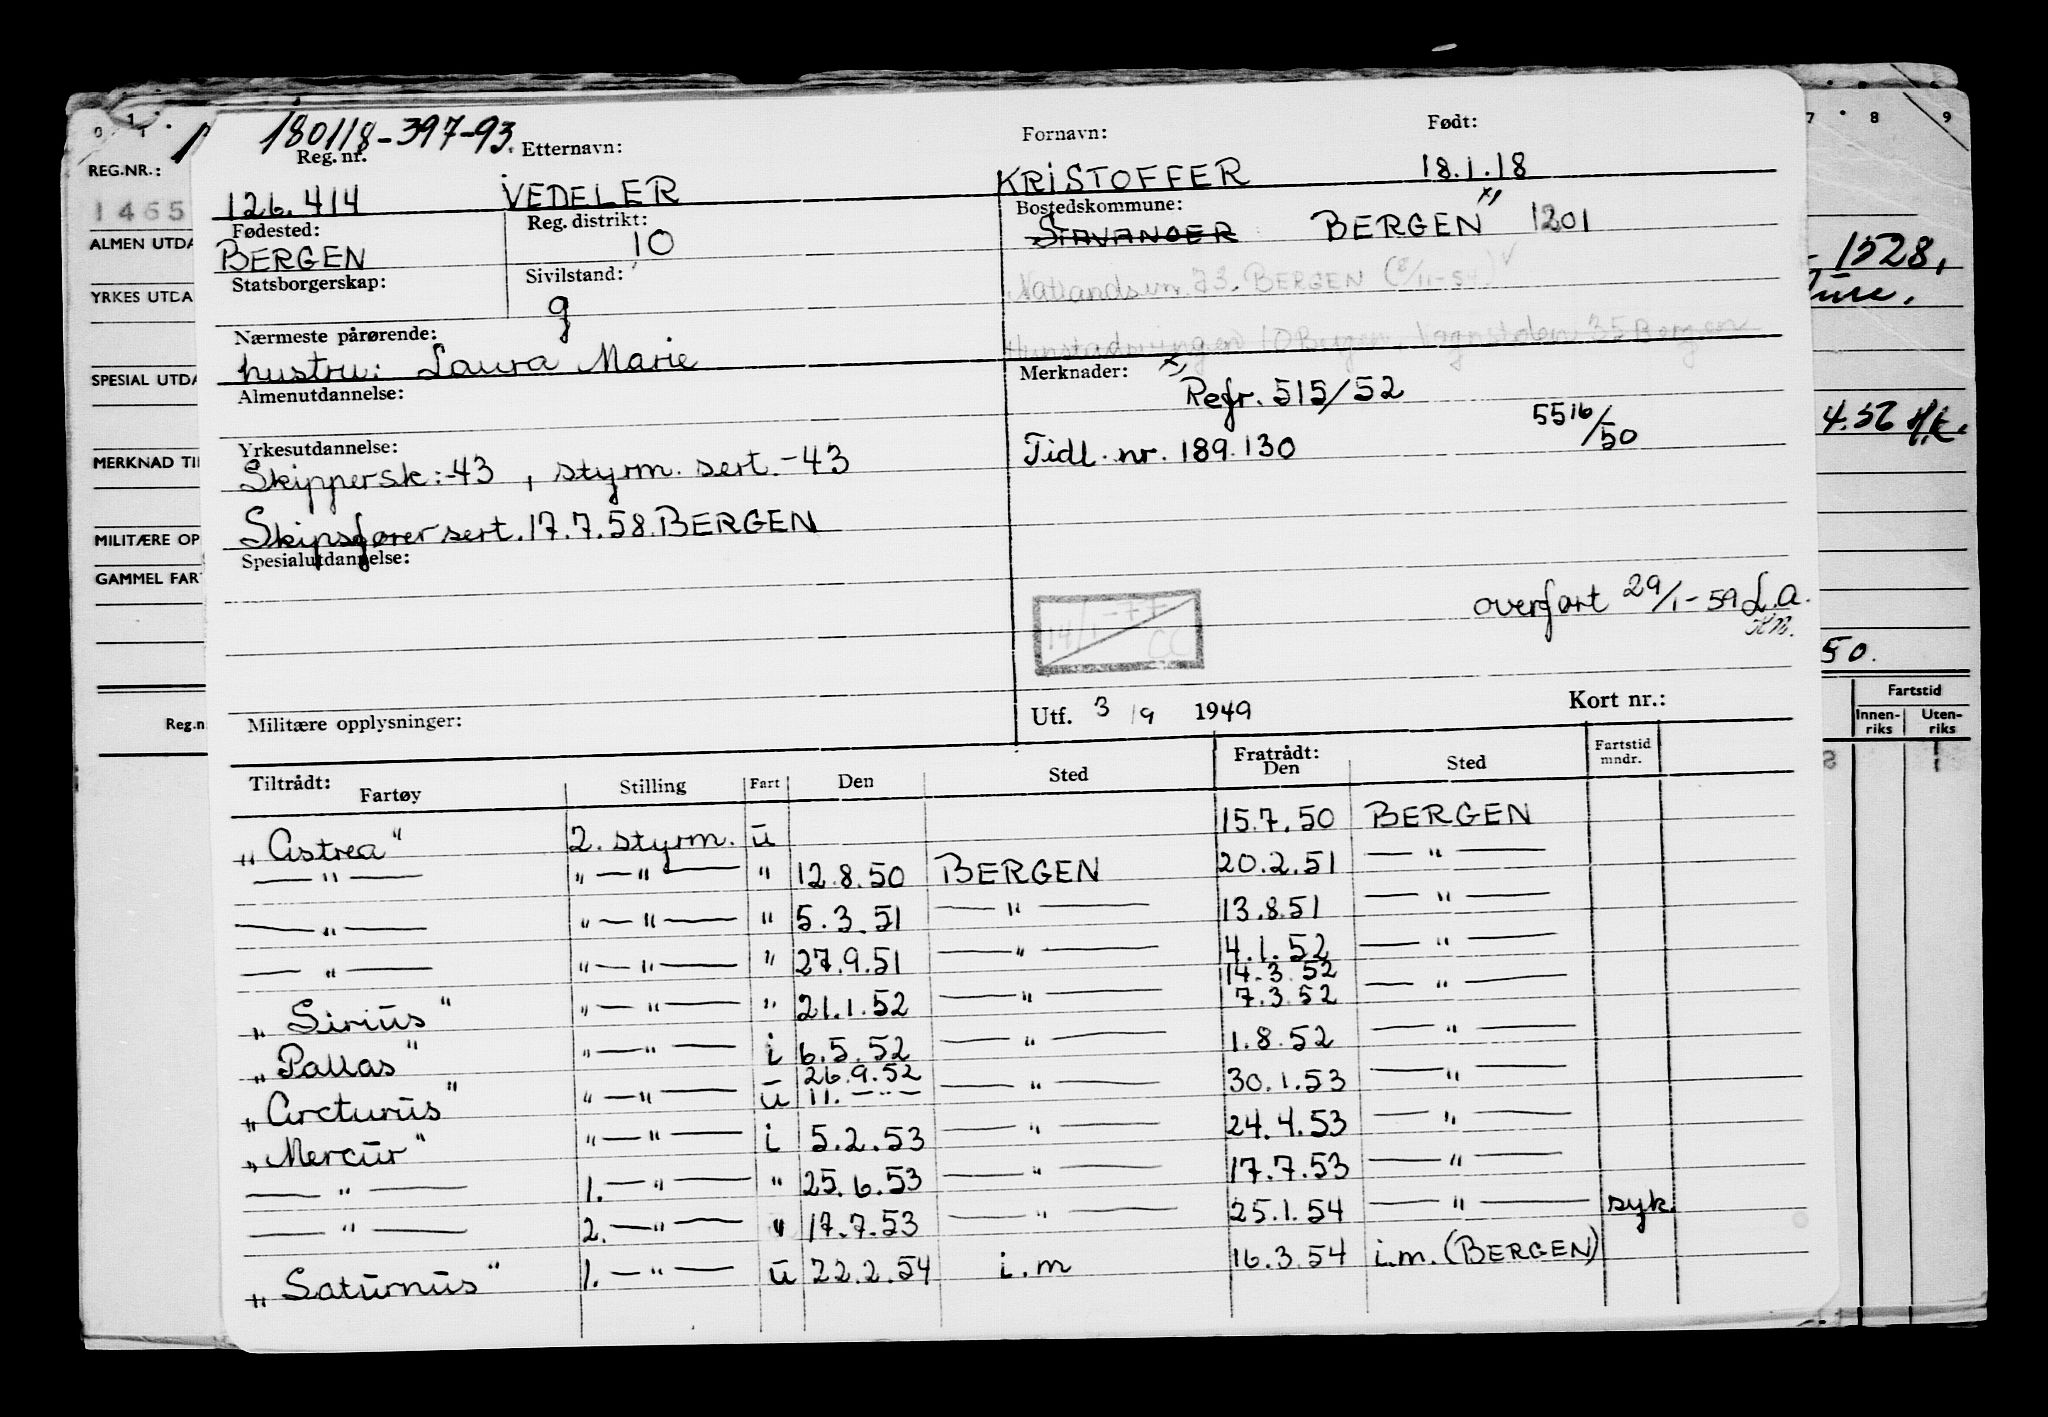 180118-397-93.
Reg. nr. Etternavn: Fornavn: Født:
126.414 VEDELER KRISTOFFER 18.1.18
Fødested: Reg. distrikt: Bostedskommune:
BERGEN 10 STAVANGER BERGEN x) 1201
Statsborgerskap: Sivilstand:
g
73. BERGEN
Nærmeste pårørende:
hustru: Laura Marie
10 Bergen, 35 Bergen
Almenutdannelse: Merknader: x)
Refr. 515/52
Yrkesutdannelse: Tidl. nr. 189.130 5516/50
Skippersk:-43, styrm. sert.-43
Skipsfører sert. 17.7.58. BERGEN
Spesialutdannelse:
14/1-77 CC
overført 29/1-59 L.a.
Militære opplysninger: Utf. 3/9 1949 Kort nr.:
Tiltrådt: Fratrådt:
Fartøy Stilling Fart Den Sted Den Sted Fartstid mndr.
„Astrea" 2. styrm. u 15.7.50 BERGEN
— " — " — " — " 12.8.50 BERGEN 20.2.51 — " —
— " — " — " — " 5.3.51 — " — 13.8.51 — " —
— " — " — " — " 27.9.51 — " — 4.1.52 — " —
14.3.52
„Sirius" " — " — " 21.1.52 — " — 7.3.52 — " —
„Pallas" " — " — i 6.5.52 — " — 1.8.52 — " —
26.9.52
„Arcturus" " — " — u 11. — " — — " — 30.1.53 — " —
„Mercur" " — " — i 5.2.53 — " — 24.4.53 — " —
— " — 1. — " — " 25.6.53 — " — 17.7.53 — " —
— " — 2. — " — " 17.7.53 — " — 25.1.54 — " — syk
„Saturnus" 1. — " — u 22.2.54 i.m 16.3.54 i.m. (BERGEN)
REG.NR.:
1465
ALMEN UTDA
YRKES UTDA
SPESIAL UTDA
MERKNAD TI
MILITÆRE OP
GAMMEL FAR
Reg.n
7 8 9
1528,
4.56 H.K.
50.
Fartstid
Innenriks Utenriks